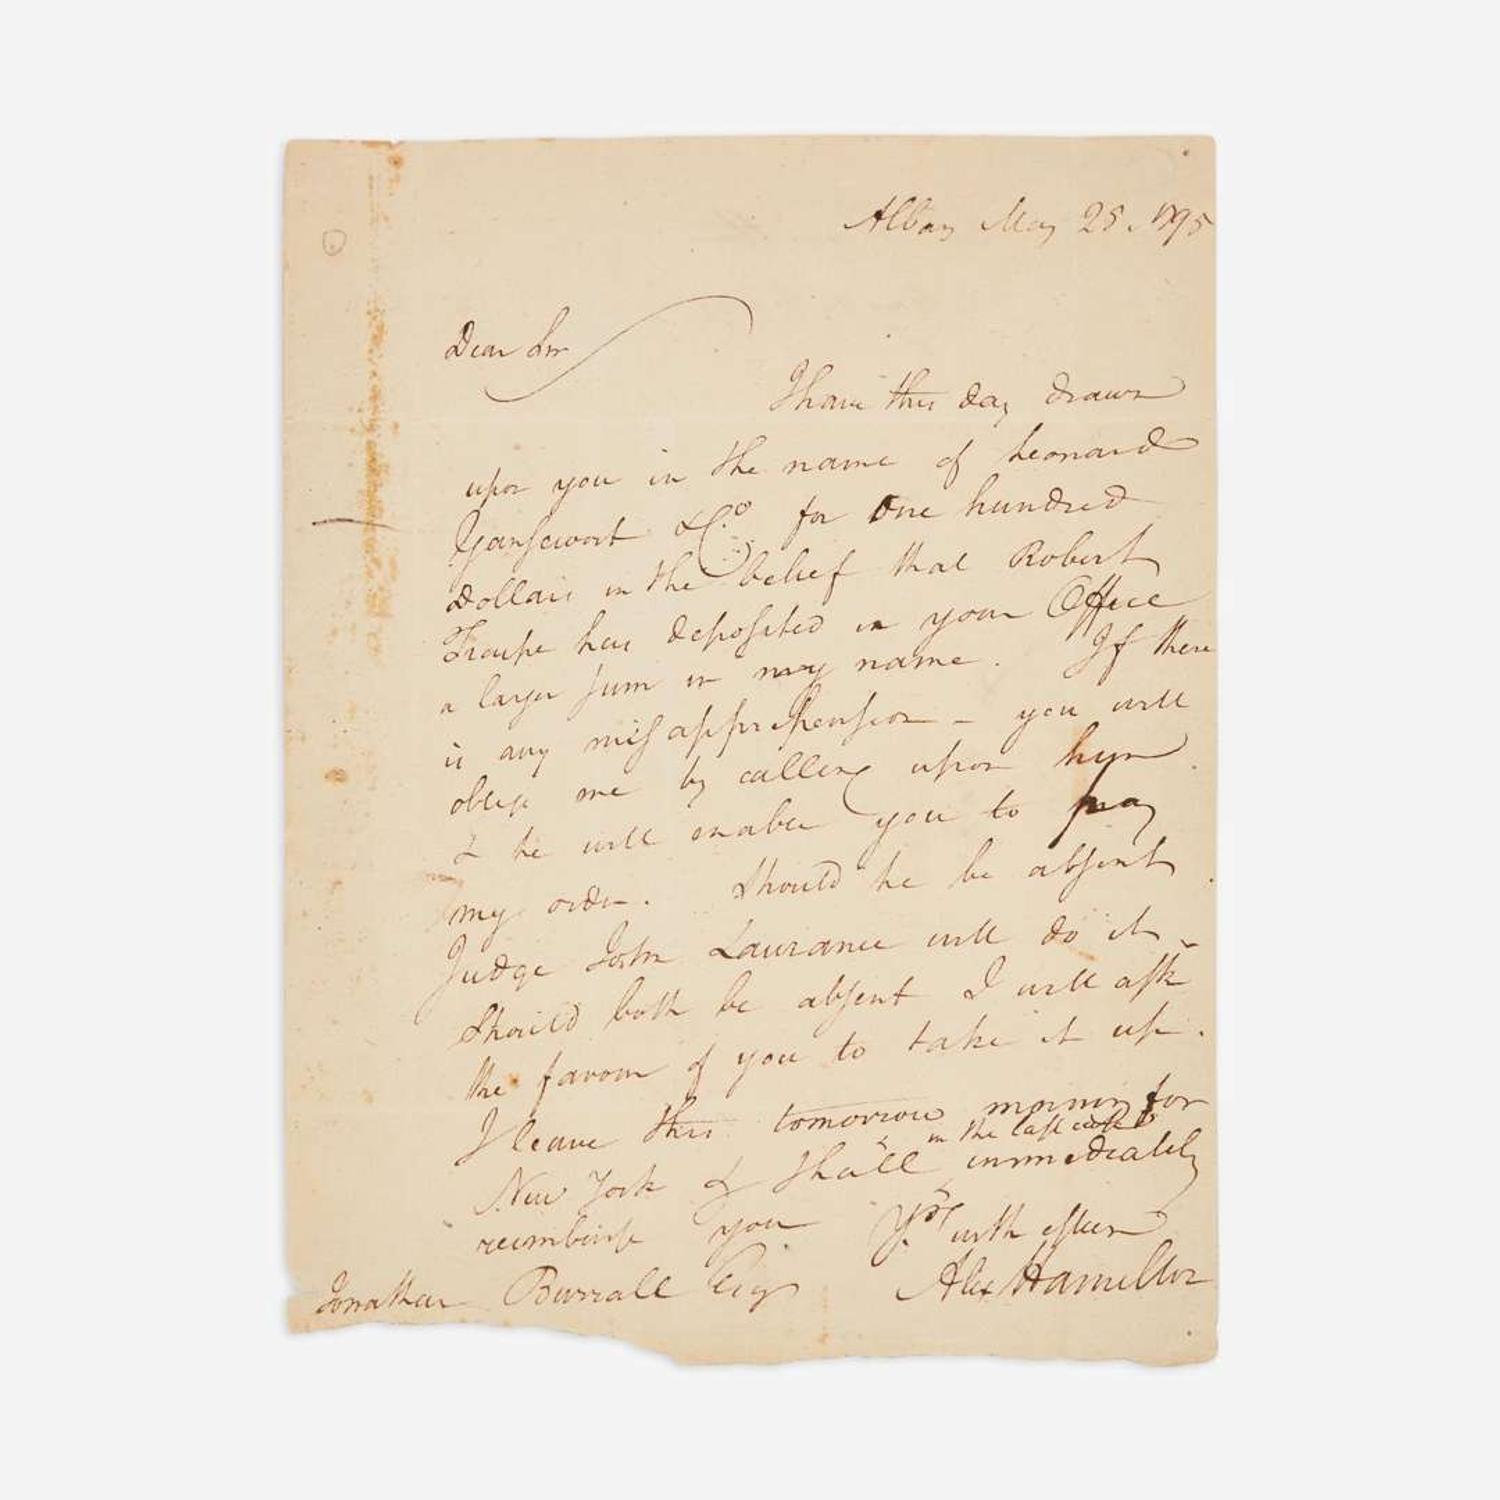 Albany May 25. 1795
Dear Sir
I have this day drawn
upon you in the name of Leonard
Gansevoort & Co. for One hundred
Dollars in the belief that Robert
Troupe has deposited in your Office
a larger sum in my name. If there
is any misapprehension – you will
oblige me by calling upon him
& he will enable you to pay
my order. Should he be absent
Judge John Laurance will do it –
Should both be absent I will ask
the favour of you to take it up.
I leave this tomorrow morning for
in the last case
New York & shall immediately
reimburse you Yrs with esteem
Jonathan Burrall Esq Alex Hamilton